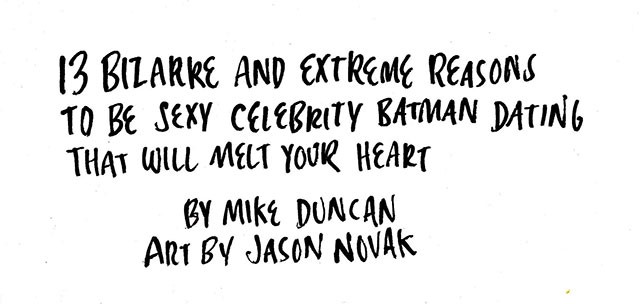 13 BIZARRE AND EXTREME REASONS
TO BE SEXY CELEBRITY BATMAN DATING
THAT WILL MELT YOUR HEART
BY MIKE DUNCAN
ART BY JASON NOVAK